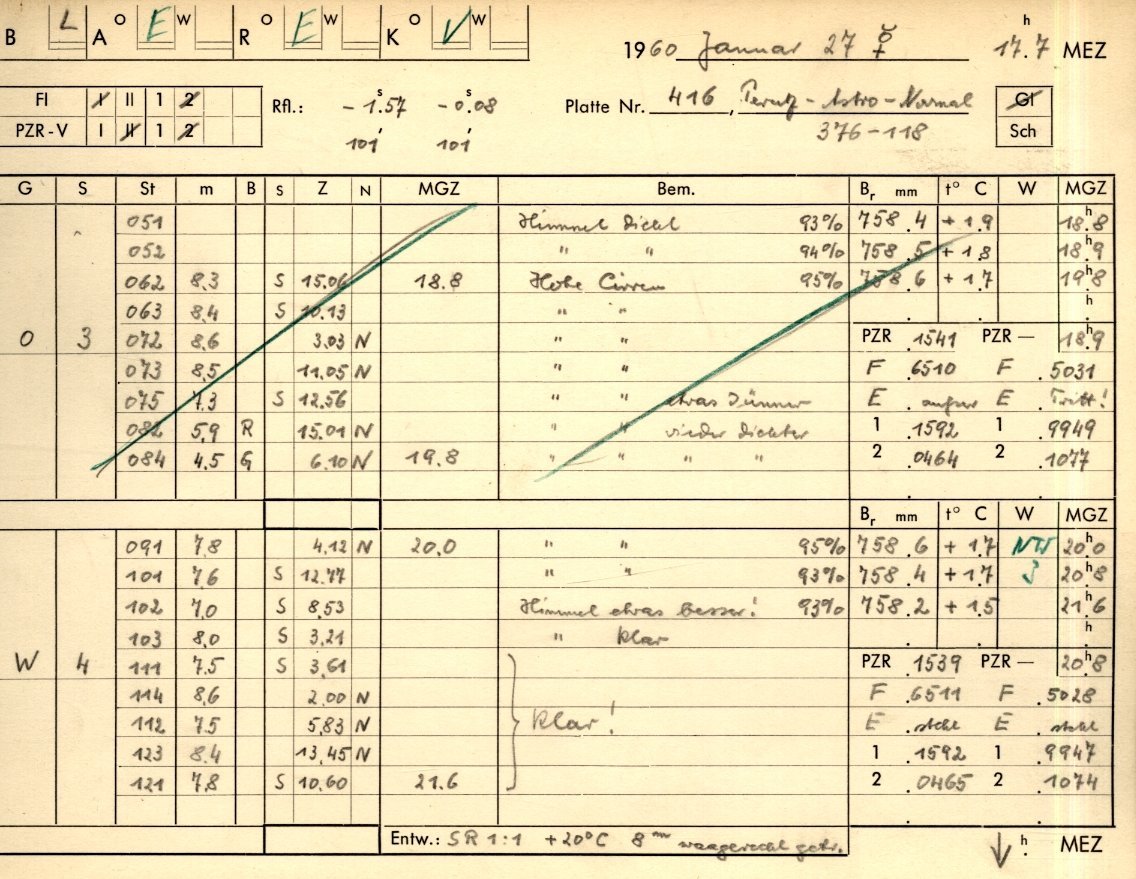 B L A O E W R O E W K O V W
1960 Januar 27 ☿ 17.7 h MEZ
FI I II 1 2 Rfl.: -1.57 s -0.08 s Platte Nr. 416, Perutz-Astro-Normal Gl
PZR-V I II 1 2 101 101 376-118 Sch
G S St m B S Z N MGZ Bem. Br mm t° C W MGZ
051 Himmel dicht 93% 758.4 +1.9 18.8 h
052 " " 94% 758.5 +1.8 18.9 h
062 8.3 S 15.06 18.8 Hohe Cirren 95% 758.6 +1.7 19.8 h
063 8.4 S 10.13 " " . . h
O 3 072 8.6 3.03 N " " PZR .1541 PZR — 18.9 h
073 8.5 11.05 N " " F .6510 F .5031
075 7.3 S 12.56 " " etwas dünner E . außer E . Tritt!
082 5.9 R 15.01 N " " wieder dichter 1 .1592 1 .9949
084 4.5 G 6.10 N 19.8 " " " " 2 .0464 2 .1077
Br mm t° C W MGZ
091 7.8 4.12 N 20.0 " " 95% 758.6 +1.7 NW 20.0 h
101 7.6 S 12.77 " " 93% 758.4 +1.7 3 20.8 h
102 7.0 S 8.53 Himmel etwas besser! 93% 758.2 +1.5 21.6 h
103 8.0 S 3.21 " klar . . h
W 4 111 7.5 S 3.61 PZR .1539 PZR — 20.8 h
114 8.6 2.00 N F .6511 F .5028
112 7.5 5.83 N klar! E . steht E . steht
123 8.4 13.45 N 1 .1592 1 .9947
121 7.8 S 10.60 21.6 2 .0465 2 .1074
Entw.: SR 1:1 +20°C 8 min waagerecht getr. h MEZ